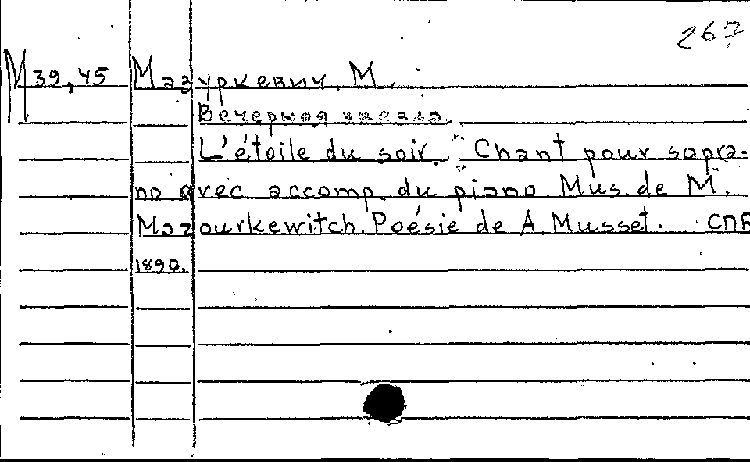 267
М 39,45 Мазуркевич, М.
Вечерняя звезда.
L'étoile du soir. Chant pour sopra-
no avec accomp. du piano Mus. de M.
Mazourkewitch. Poésie de A. Musset. СПБ
1890.